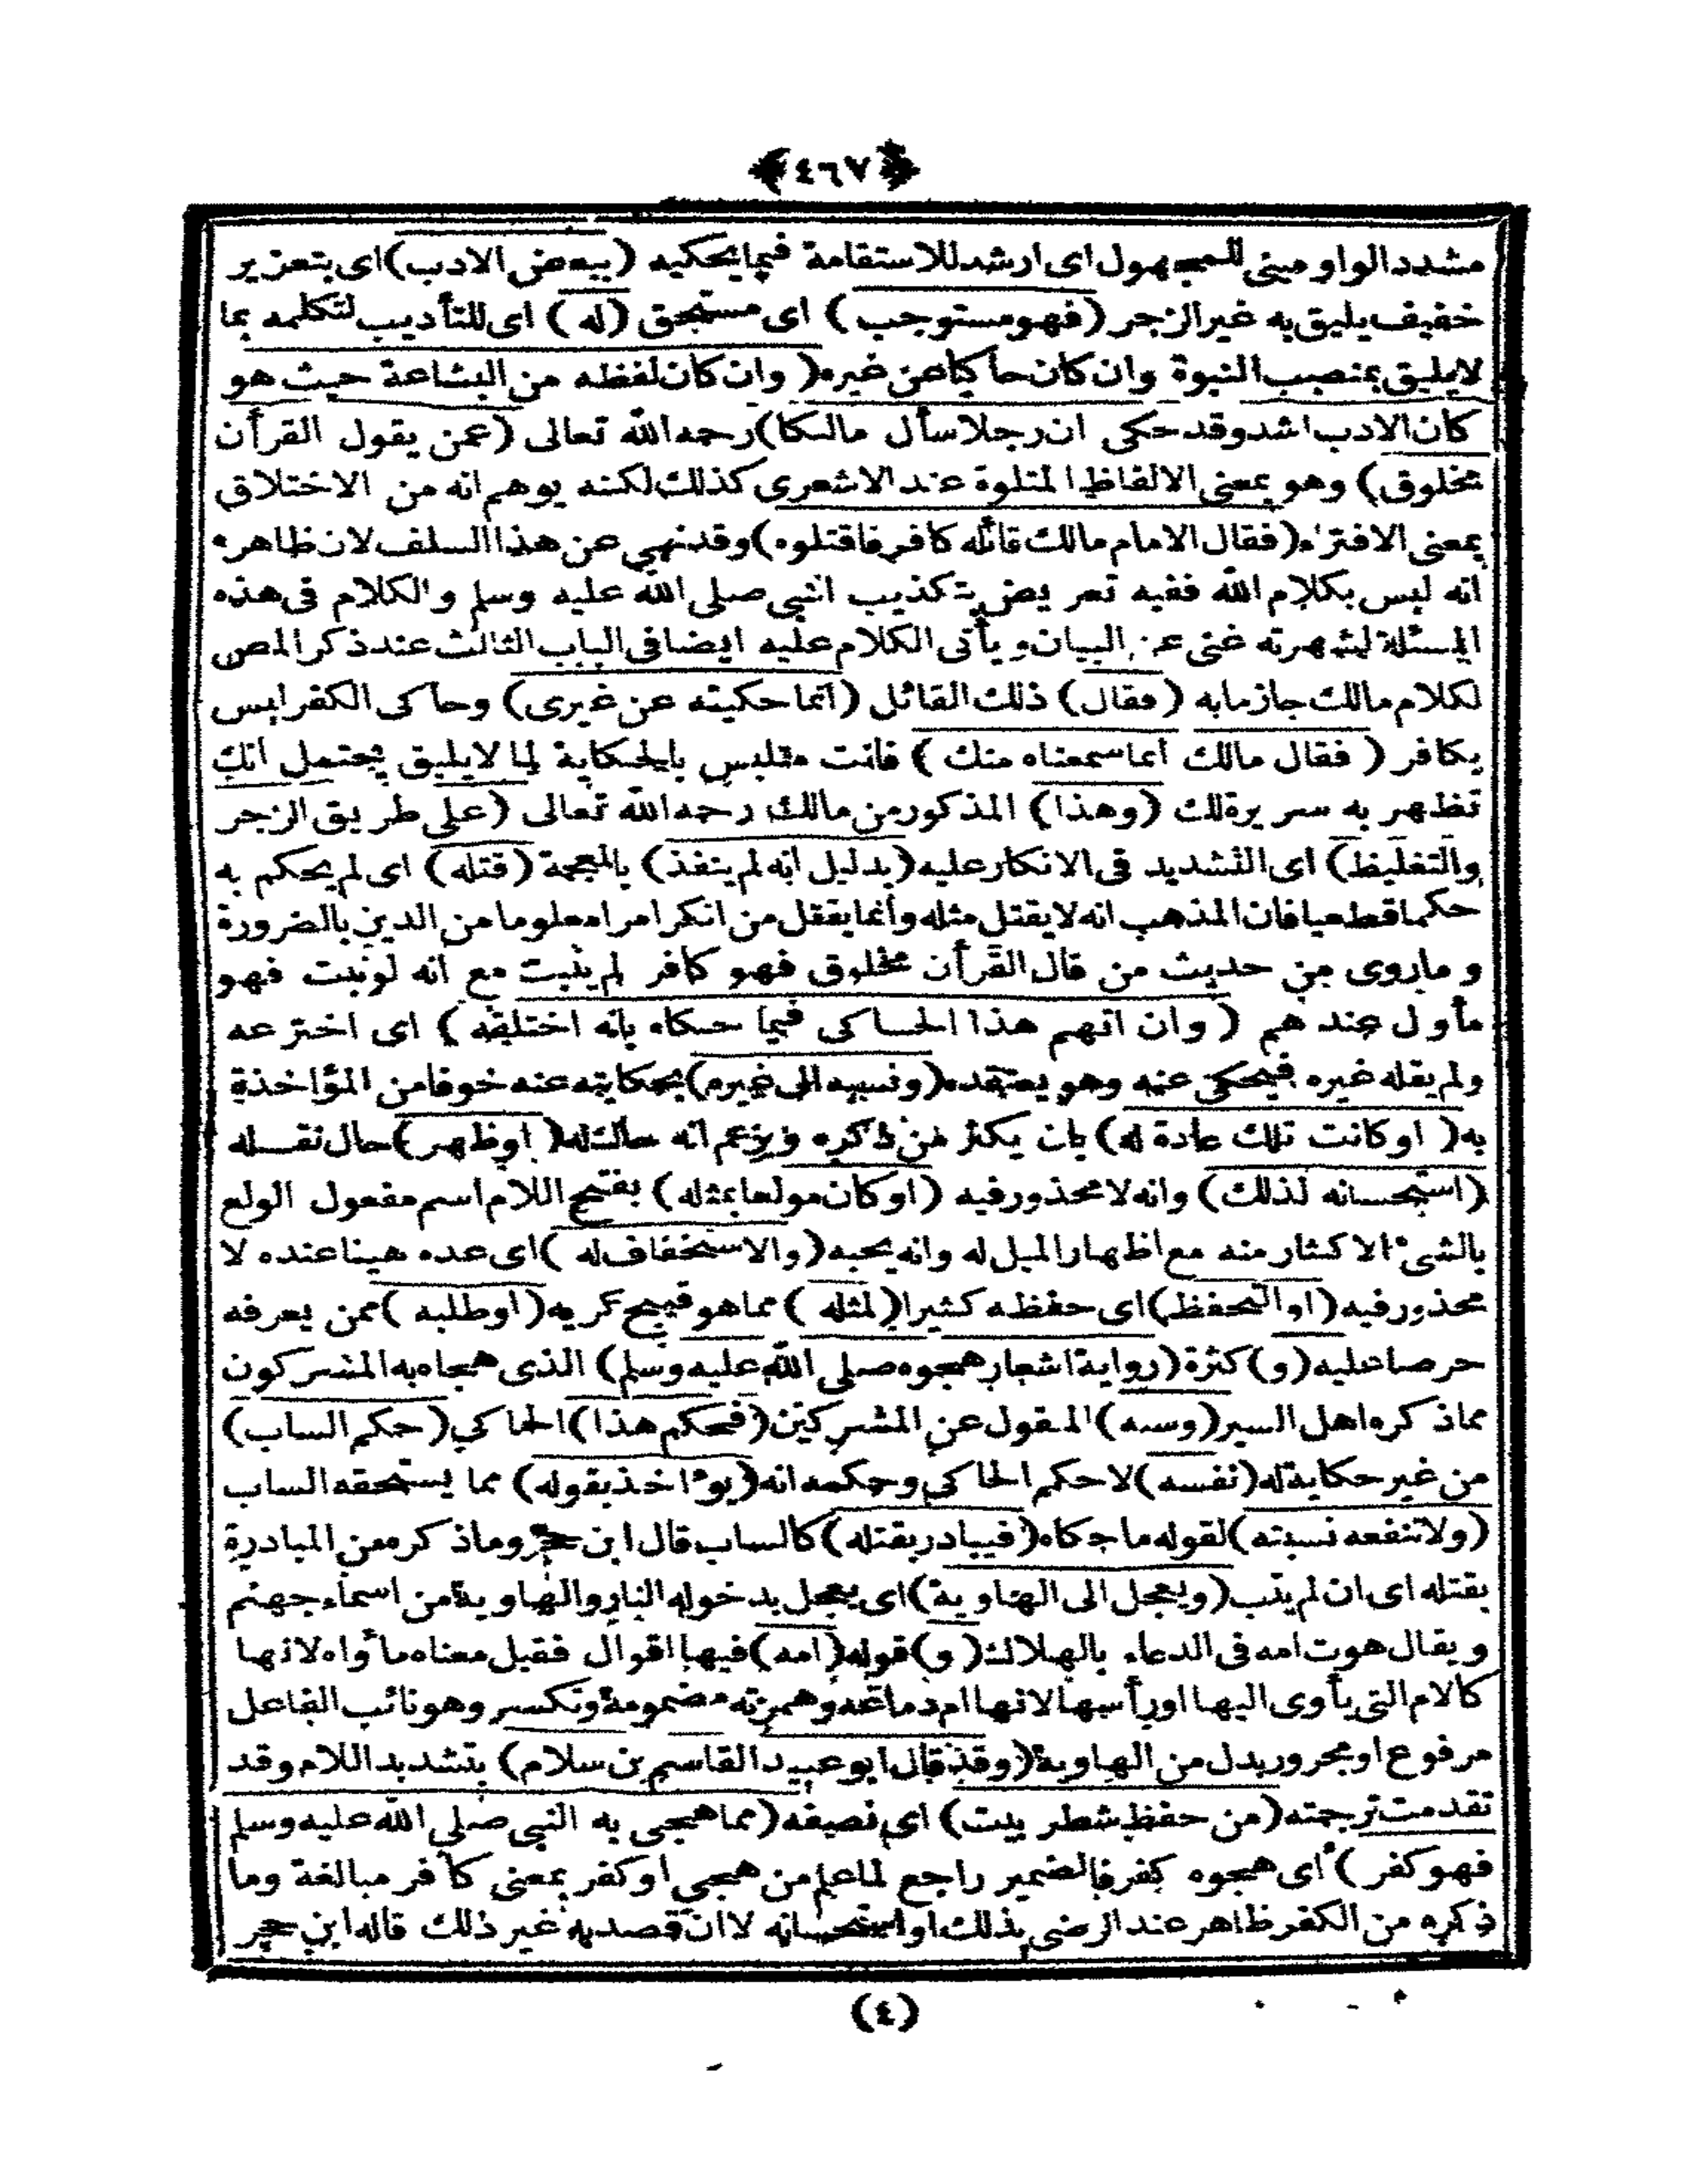 ﴿٤٦٧﴾
مشدد الواو مبنى للمجهول اى ارشد للاستقامة فيما يحكيه (ببعض الادب) اى بتعزير
خفيف يليق به غير الزجر (فهو مستوجب) اى مستحق (له) اى للتأديب لتكلمه بما
لا يليق بمنصب النبوة وان كان حاكيا عن غيره (وان كان لفظه من البشاعة حيث هو
كان الادب اشد وقد حكى ان رجلا سأل مالكا) رحمه الله تعالى (عمن يقول القرأن
مخلوق) وهو بمعنى الالفاظ المتلوة عند الاشعرى كذلك لكنه يوهم انه من الاختلاق
بمعنى الافتراء (فقال الامام مالك قائله كافر فاقتلوه) وقد نهى عن هذا السلف لان ظاهره
انه ليس بكلام الله ففيه تعريض بتكذيب النبى صلى الله عليه وسلم والكلام فى هذه
المسئلة لشهرته غنى عن البيان ويأتى الكلام عليه ايضا فى الباب الثالث عند ذكر المص
لكلام مالك جازما به (فقال) ذلك القائل (انما حكيته عن غيرى) وحاكى الكفر ليس
بكافر (فقال مالك انما سمعناه منك) فانت متلبس بالحكاية لما لا يليق يحتمل انك
تظهر به سريرة لك (وهذا) المذكور من مالك رحمه الله تعالى (على طريق الزجر
والتغليظ) اى التشديد فى الانكار عليه (بدليل انه لم ينفذ) بالمعجمة (قتله) اى لم يحكم به
حكما قطعيا فان المذهب انه لا يقتل مثله وانما يقتل من انكر امرا معلوما من الدين بالضرورة
وماروى من حديث من قال القرأن مخلوق فهو كافر لم يثبت مع انه لو ثبت فهو
مأول عندهم (وان اتهم هذا الحاكى فيما حكاه بانه اختلقه) اى اخترعه
ولم يقله غيره فيحكى عنه وهو يعتقده (ونسبه الى غيره) بحكايته عنه خوفا من المؤاخذة
به (او كانت تلك عادة له) بان يكثر من ذكره ويزعم انه حاك له (اوظهر) حال نقله
(استحسانه لذلك) وانه لا محذور فيه (او كان مولعا بمثله) بفتح اللام اسم مفعول الولع
بالشئ الاكثار منه مع اظهار الميل له وانه يحبه (والاستخفاف له) اى عده هينا عنده لا
محذور فيه (او التحفظ) اى حفظه كثيرا (لمثله) مما هو قبيح كريه (اوطلبه) ممن يعرفه
حرصا عليه (و) كثرة (رواية اشعار هجوه صلى الله عليه وسلم) الذى هجاه به المشركون
مماذكره اهل السير (وسبه) المقول عن المشركين (فحكم هذا) الحاكي (حكم الساب)
من غير حكاية له (نفسه) لا حكم الحاكى وحكمه انه (يؤاخذ بقوله) مما يستحقه الساب
(ولا تنفعه نسبته) لقوله ما حكاه (فيبادر بقتله) كالساب قال ابن حجر وماذكره من المبادرة
بقتله اى ان لم يتب (ويعجل الى الهاوية) اى يعجل بدخوله النار والهاوية من اسماء جهنم
ويقال هوت امه فى الدعاء بالهلاك (و) قوله (امه) فيها اقوال فقيل معناه مأواه لانها
كالام التى يأوى اليها اورأسها لانها ام دماغه وهمزته مضمومة وتكسر وهو نائب الفاعل
مرفوع او مجرور بدل من الهاوية (وقد قال ابو عبيد القاسم بن سلام) بتشديد اللام وقد
تقدمت ترجمته (من حفظ شطر بيت) اى نصيفه (مما هجى به النبى صلى الله عليه وسلم
فهو كفر) اى هجوه كفر فالضمير راجع لما علم من هجى او كفر بمعنى كافر مبالغة وما
ذكره من الكفر ظاهر عند الرضى بذلك او استحسانه لا ان قصد به غير ذلك قاله ابن حجر
(٤)